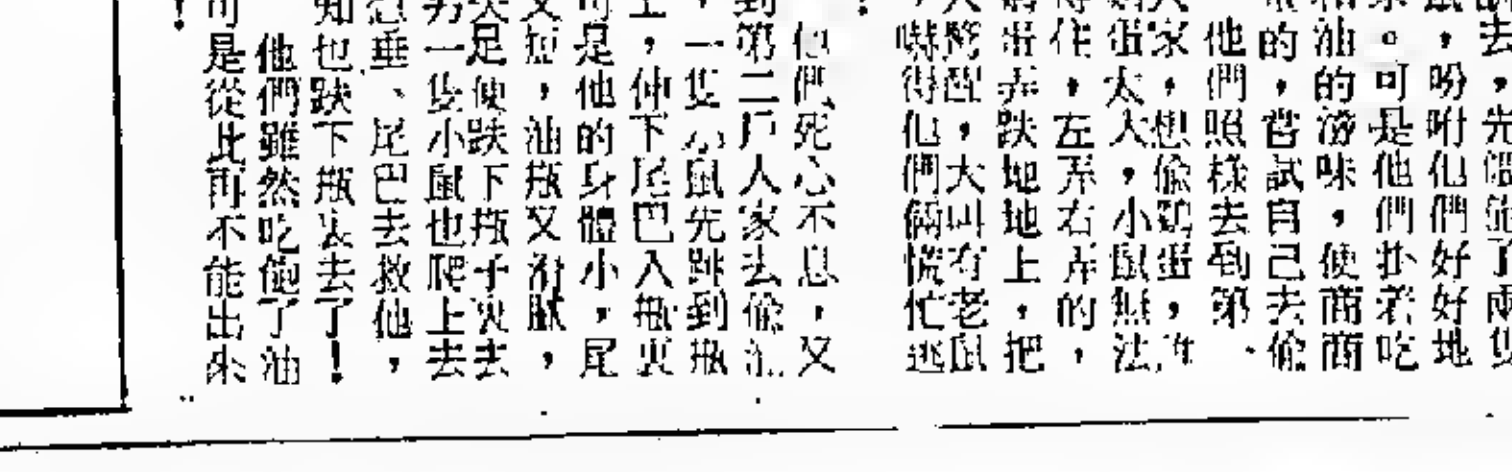 去，先
鼠，吩咐他們好好地
。可是他們掛着吃
油的滋味，使商商
的，嘗試自己去偷
他們照樣去到第
家，想偷鷄蛋，
蛋太大，小鼠無法
住，左弄右弄的，
蛋弄跌地地上，把
驚醒，大叫有老鼠
，嚇得他們倆慌忙逃
！
他們死心不息，又
到第二戶人家去偷油
，一隻小鼠先跳到瓶
上，伸下尾巴入瓶裏
可是他的身體小，尾
又短，油瓶又滑膩，
失足便跌下瓶子裏去
另一隻小鼠也爬上去
忽垂、尾巴去救他，
知也跌下瓶裏去了！
他們雖然吃飽了油
可是從此再不能出來
！